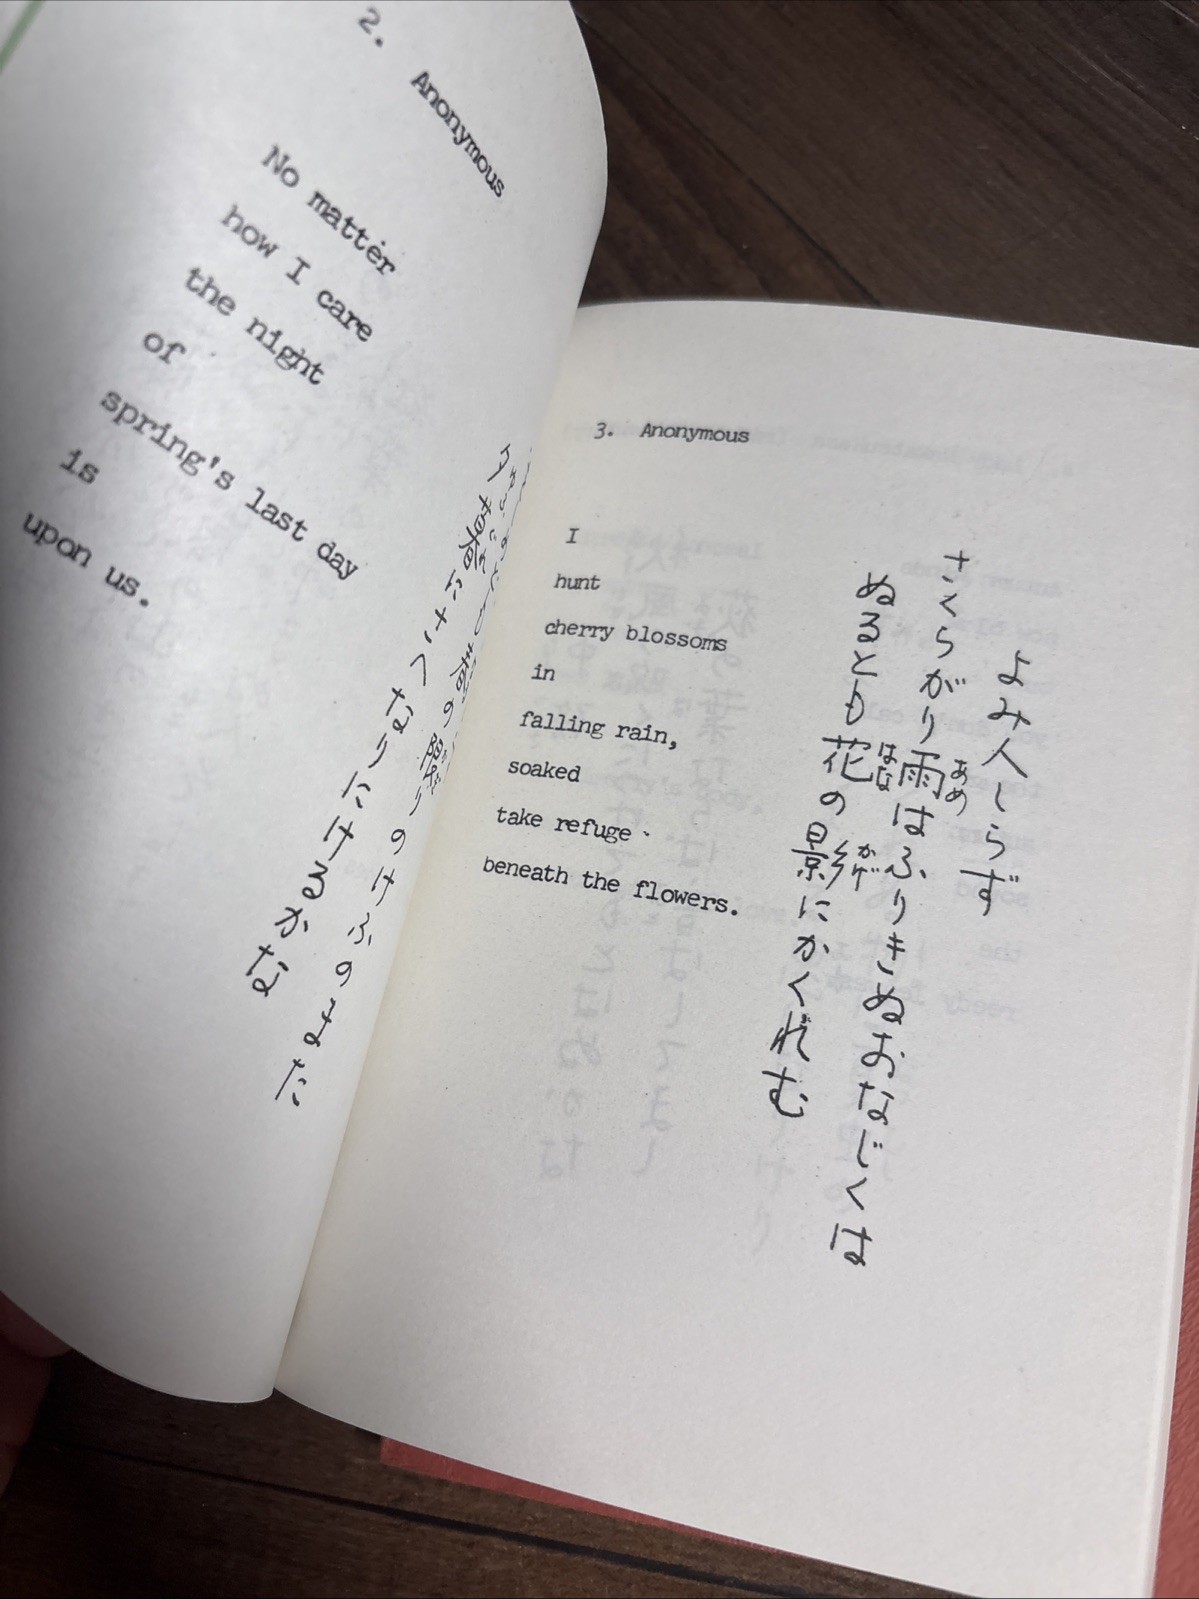 2. Anonymous
No matter
how I care
the night
of
spring's last day
is
upon us.
春の限りのけふのまた
夕暮にさへなりにけるかな
3. Anonymous
I
hunt
cherry blossoms
in
falling rain,
soaked
take refuge
beneath the flowers.
よみ人しらず
あめ
さくらがり雨はふりきぬおなじくは
はな かげ
ぬるとも花の影にかくれむ